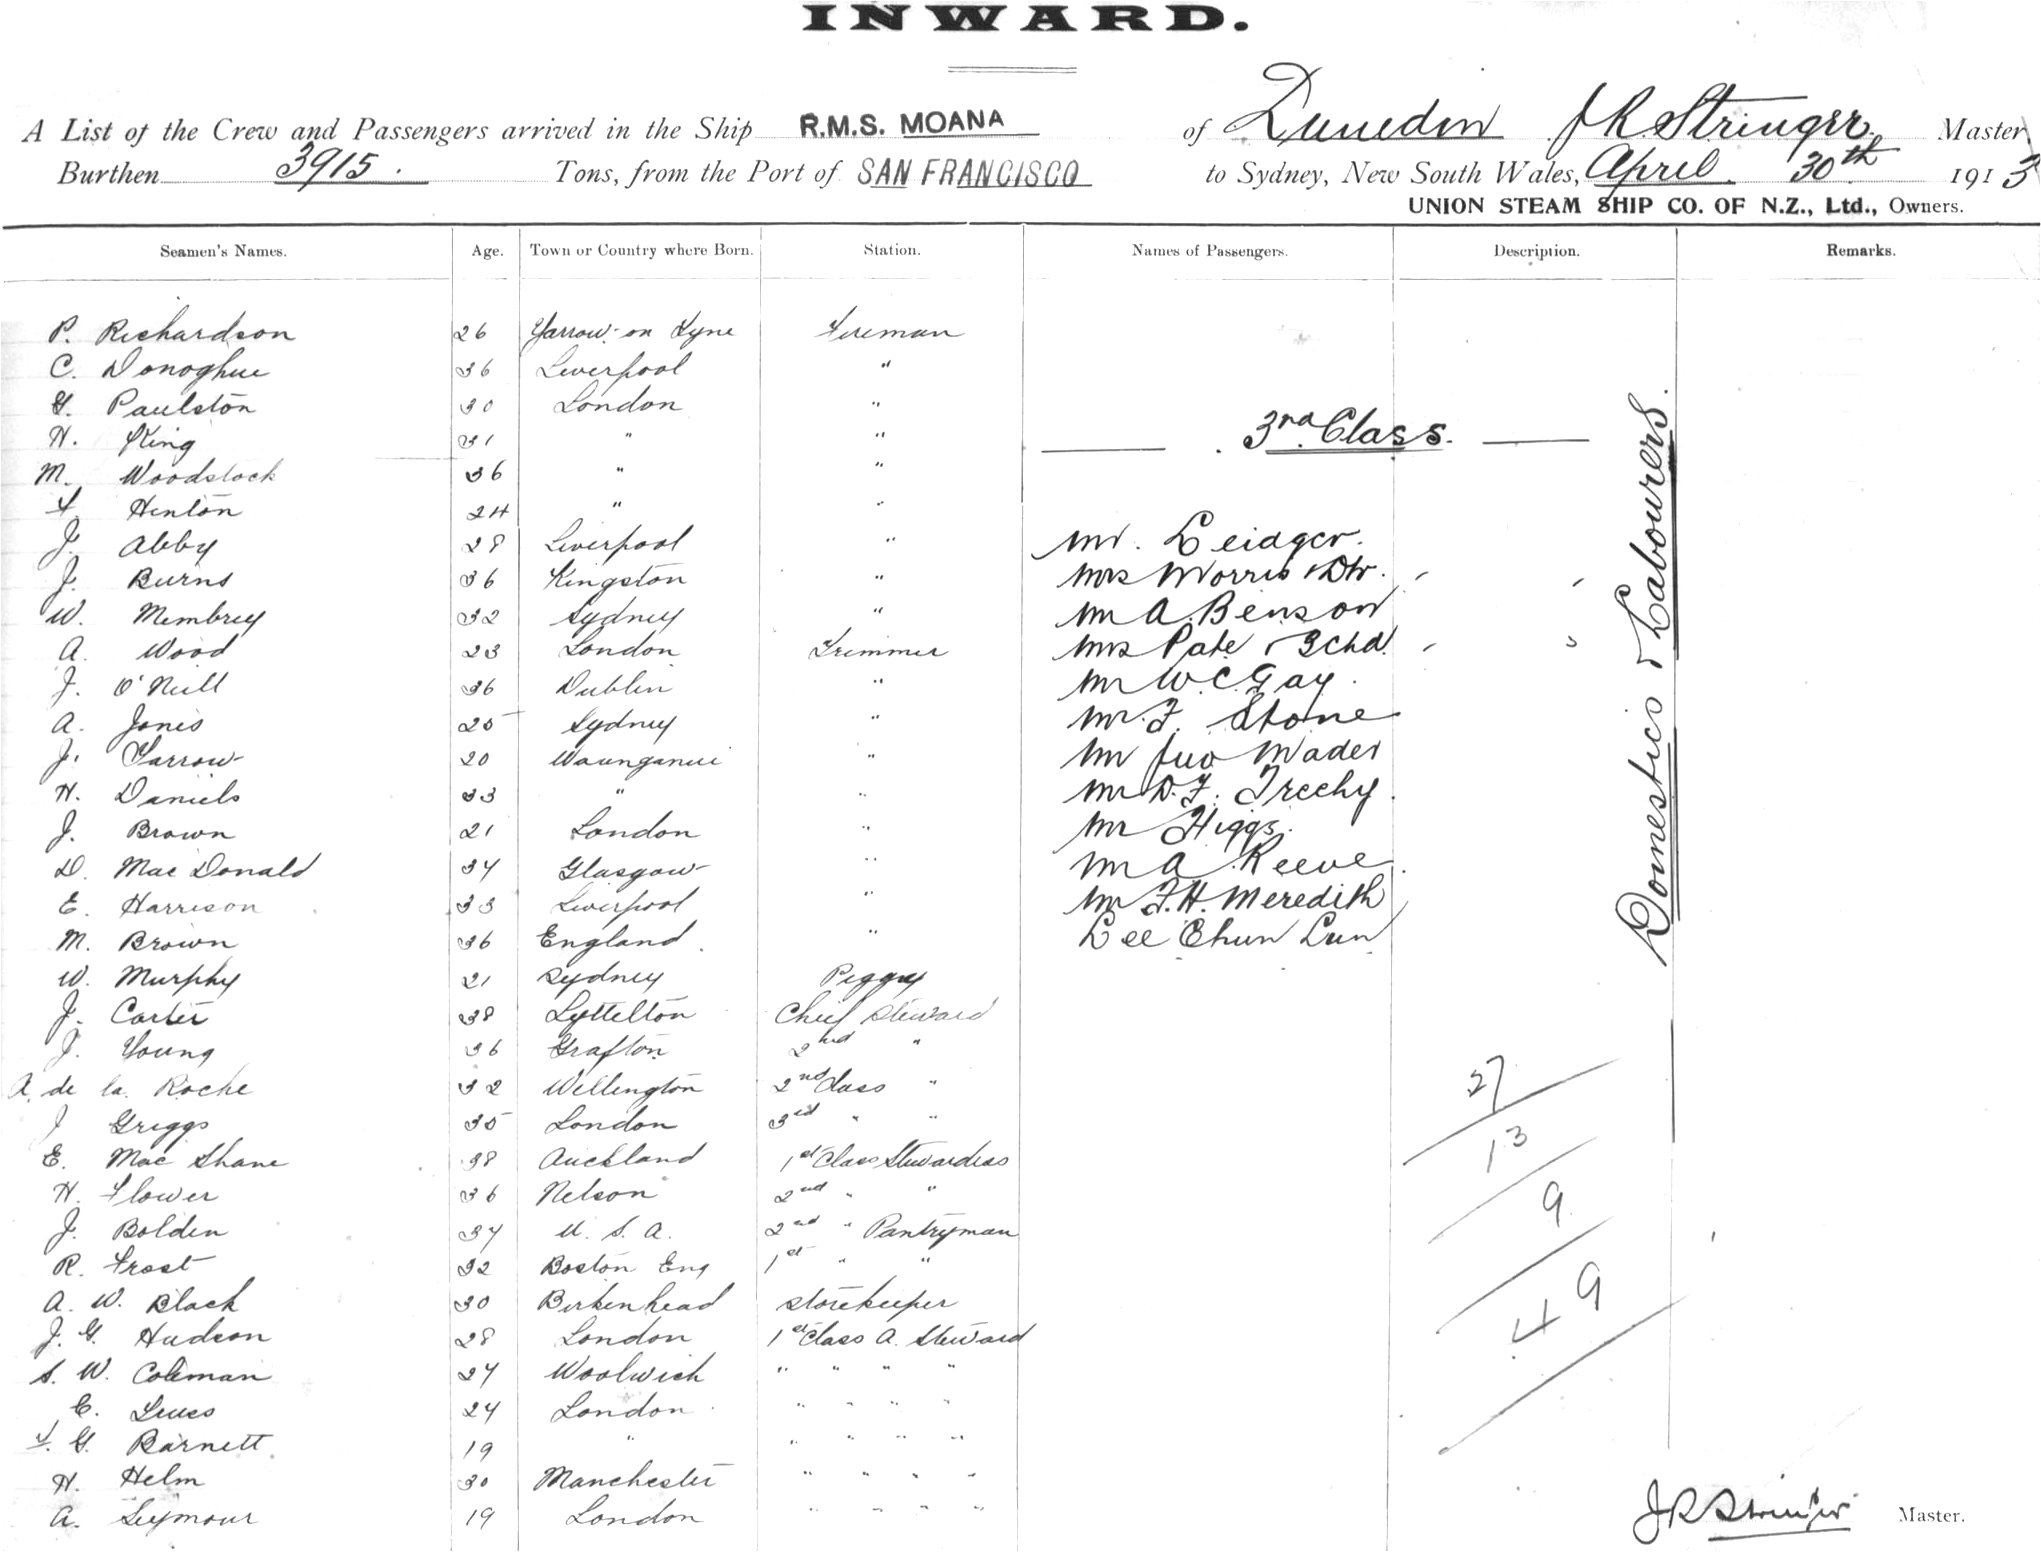 INWARD.
A List of the Crew and Passengers arrived in the Ship R.M.S. MOANA of Dunedin J R Stringer Master
Burthen 3915. Tons, from the Port of SAN FRANCISCO to Sydney, New South Wales, April 30th 1913
UNION STEAM SHIP CO. OF N.Z., Ltd., Owners.
Seamen's Names. Age. Town or Country where Born. Station. Names of Passengers. Description. Remarks.
P. Richardson 26 Yarrow-on Tyne Fireman
C. Donoghue 36 Liverpool "
G. Paulston 30 London "
3rd Class.
H. King 31 " "
M. Woodstock 36 " "
F. Hinton 24 " "
J. Abby 28 Liverpool " Mr. Leidger.
J. Burns 36 Kingston " Mrs Morris & Dtr.
W. Membrey 32 Sydney " Mr A. Benson
A. Wood 23 London Trimmer Mrs Pate & 3 Chd.
J. O'Neill 36 Dublin " Mr W C Gay.
A. Jones 25 Sydney " Mr. F. Stone
J. Yarrow 20 Waunganui " Mr Jno Mader
H. Daniels 33 " " Mr D. F. Treehy.
J. Brown 21 London " Mr Higgs.
D. MacDonald 34 Glasgow " Mr A. Reeve.
E. Harrison 33 Liverpool " Mr F. H. Meredith
M. Brown 36 England. " Lee Chun Lun
Domestics & Labourers.
W. Murphy 21 Sydney Peggy
J. Carter 38 Lyttelton Chief Steward
J. Young 36 Grafton 2nd "
A. de la. Roche 32 Wellington 2nd Class "
J Griggs 35 London 3rd " "
E. Mac Shane 38 Auckland 1st Class Stewardess
H. Flower 36 Nelson 2nd " "
J. Bolden 34 U. S. A. 2nd " Pantryman
R. Frost 32 Boston Eng 1st " "
A. W. Black 30 Birkenhead Storekeeper
J. G. Hudson 28 London 1st Class A. Steward
S. W. Coleman 24 Woolwich " " " "
E. 24 London " " " "
F. G. Barnett 19 " " " " "
H. Helm 30 Manchester " " " "
A. Seymour 19 London " " " "
27
13
9
49
J R Stringer Master.